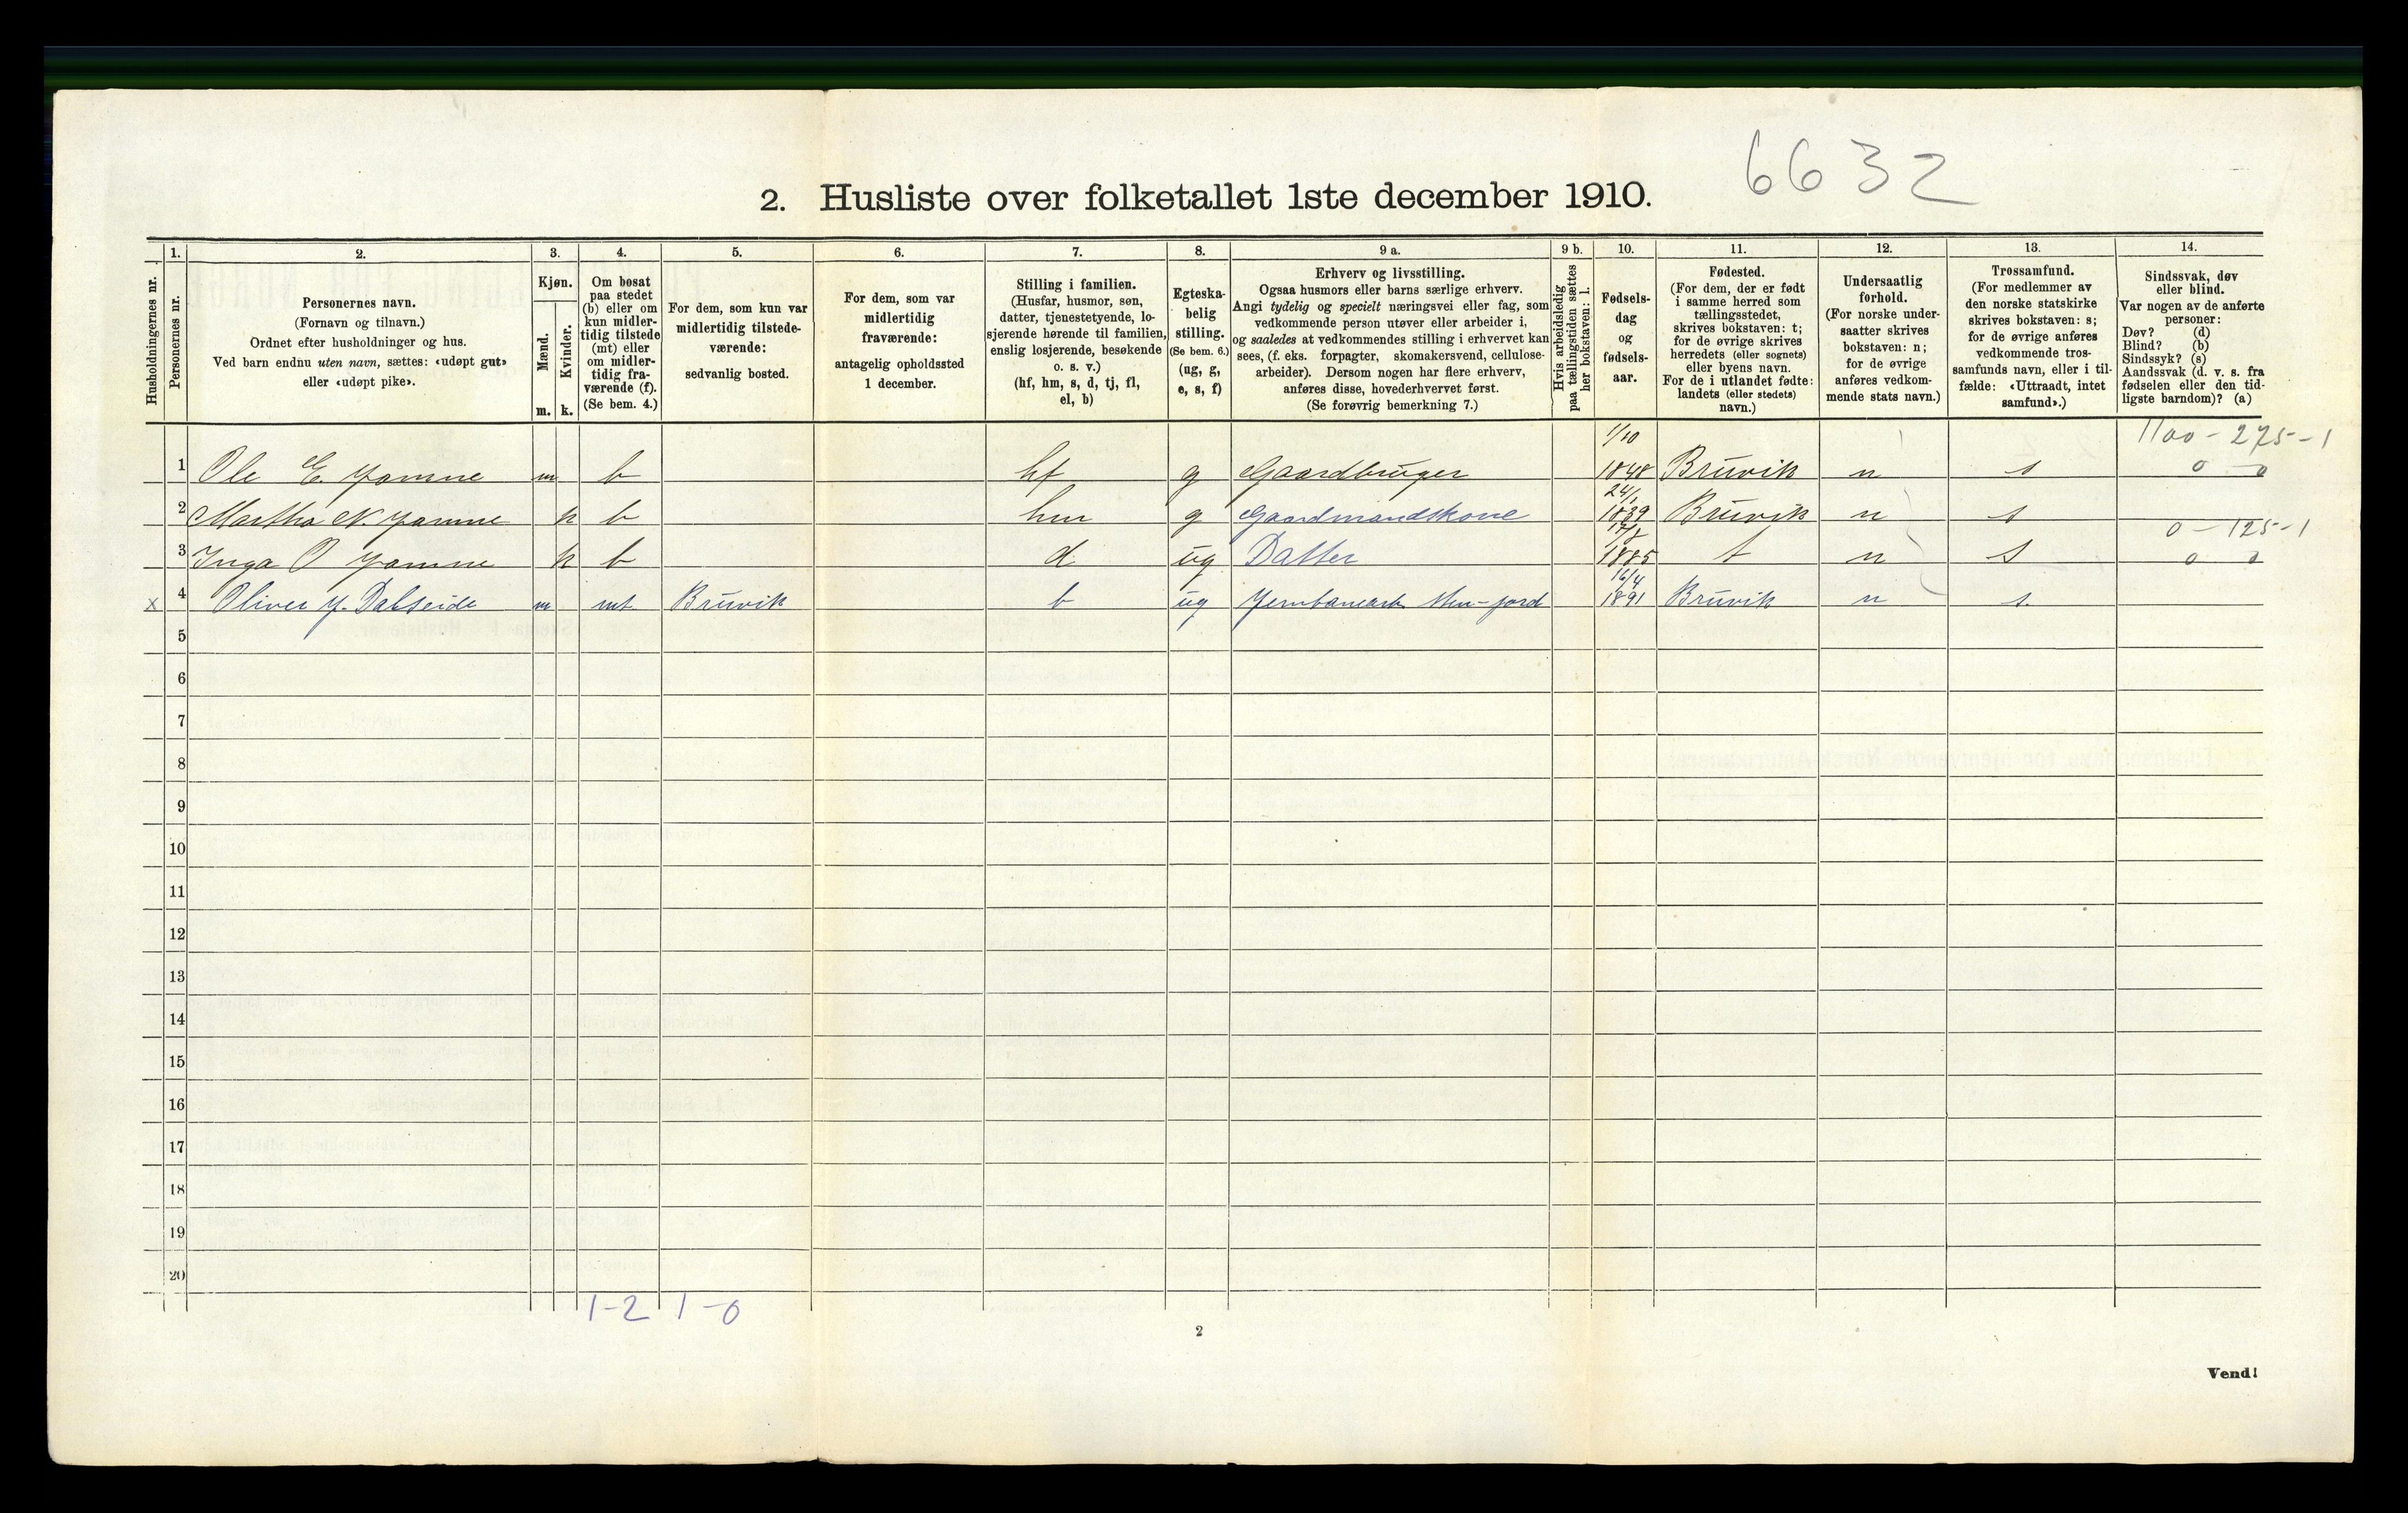 6632
2. Husliste over folketallet 1ste december 1910.
Husholdningernes nr.
1.
Personernes nr.
2.
Personernes navn.
(Fornavn og tilnavn.)
Ordnet efter husholdninger og hus.
Ved barn endnu uten navn, sættes: «udøpt gut»
eller «udøpt pike».
3.
Kjøn.
Mænd.
Kvinder.
m. k.
4.
Om bosat
paa stedet
(b) eller om
kun midler-
tidig tilstede
(mt) eller
om midler-
tidig fra-
værende (f).
(Se bem. 4.)
5.
For dem, som kun var
midlertidig tilstede-
værende:
sedvanlig bosted.
6.
For dem, som var
midlertidig
fraværende:
antagelig opholdssted
1 december.
7.
Stilling i familien.
(Husfar, husmor, søn,
datter, tjenestetyende, lo-
sjerende hørende til familien,
enslig losjerende, besøkende
o. s. v.)
(hf, hm, s, d, tj, fl,
el, b)
8.
Egteska-
belig
stilling.
(Se bem. 6.)
(ug, g,
e, s, f)
9 a.
Erhverv og livsstilling.
Ogsaa husmors eller barns særlige erhverv.
Angi tydelig og specielt næringsvei eller fag, som
vedkommende person utøver eller arbeider i,
og saaledes at vedkommendes stilling i erhvervet kan
sees, (f. eks. forpagter, skomakersvend, cellulose-
arbeider). Dersom nogen har flere erhverv,
anføres disse, hovederhvervet først.
(Se forøvrig bemerkning 7.)
9 b.
Hvis arbeidsledig
paa tællingstiden sættes
her bokstaven: l.
10.
Fødsels-
dag
og
fødsels-
aar.
11.
Fødested.
(For dem, der er født
i samme herred som
tællingsstedet,
skrives bokstaven: t;
for de øvrige skrives
herredets (eller sognets)
eller byens navn.
For de i utlandet fødte:
landets (eller stedets)
navn.)
12.
Undersaatlig
forhold.
(For norske under-
saatter skrives
bokstaven: n;
for de øvrige
anføres vedkom-
mende stats navn.)
13.
Trossamfund.
(For medlemmer av
den norske statskirke
skrives bokstaven: s;
for de øvrige anføres
vedkommende tros-
samfunds navn, eller i til-
fælde: «Uttraadt, intet
samfund».)
14.
Sindssvak, døv
eller blind.
Var nogen av de anførte
personer:
Døv? (d)
Blind? (b)
Sindssyk? (s)
Aandssvak (d. v. s. fra
fødselen eller den tid-
ligste barndom)? (a)
1100 - 275 - 1
1 Ole E. Jamne m b hf g Gaardbruger 1/10 1848 Bruvik n s 0 0
2 Martha N. Jamne k b hm g Gaardmandskone 24/1 1839 Bruvik n s
0 - 125 - 1
3 Inga O Jamne k b d ug Datter 1885 t n s 0 0
x 4 Oliver J. Dalseide m mt Bruvik b ug Jernbanearb. 16/4 1891 Bruvik n s.
5
6
7
8
9
10
11
12
13
14
15
16
17
18
19
20
1-2 1-0
2
Vend!